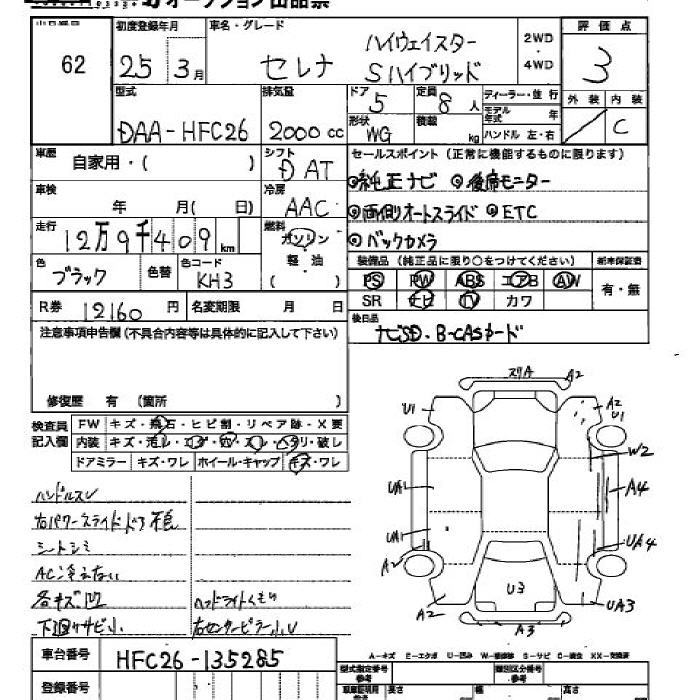 オークション出品票
出品番号 初度登録年月 車名・グレード ハイウェイスター 2WD ・ 4WD 評価点
62 25 3月 セレナ Sハイブリッド 3
型式 排気量 ドア 5 定員 8人 ディーラー・並行 外装 内装
DAA-HFC26 2000cc 形状 WG 積載 kg モデル年式 年 ハンドル 左・右 C
車歴 自家用・( ) シフト DAT セールスポイント(正常に機能するものに限ります)
車検 年 月( 日) 冷房 AAC ◎純正ナビ ◎後席モニター
◎両側オートスライド ◎ETC
走行 12万9千409km 燃料 ガソリン 軽・油 ( ) ◎バックカメラ
色 ブラック 色替 色コード KH3 装備品(純正品に限り○をつけてください) 新車保証書
PS PW ABS エアB AW 有・無
R券 12160円 名変期限 月 日 SR ナビ TV カワ
注意事項申告欄(不具合内容等は具体的に記入して下さい) 後日品
ナビSD・B-CASカード
修復歴 有 (箇所 )
検査員記入欄 FW キズ・飛石・ヒビ割・リペア跡・X要
内装 キズ・汚レ・コゲ・穴・スレ・ヘタリ・破レ
ドアミラー キズ・ワレ ホイール・キャップ キズ・ワレ
スリA A2
U1 A2 U1
W2
UA1 A4
UA1 UA4
A2
U3
A2 UA3
A3
ハンドルスレ
右パワースライドドア不良
シートシミ
AC冷えない
各キズ凹 ヘッドライトくもり
下廻りサビ小 右センターピラー小U
車台番号 HFC26-135285
A-キズ E-エクボ U-凹み W-補修跡 S-サビ C-腐食 XX-交換済
登録番号 型式指定番号 参考 類別区分番号 参考
車庫証明用 参考 長さ 幅 高さ